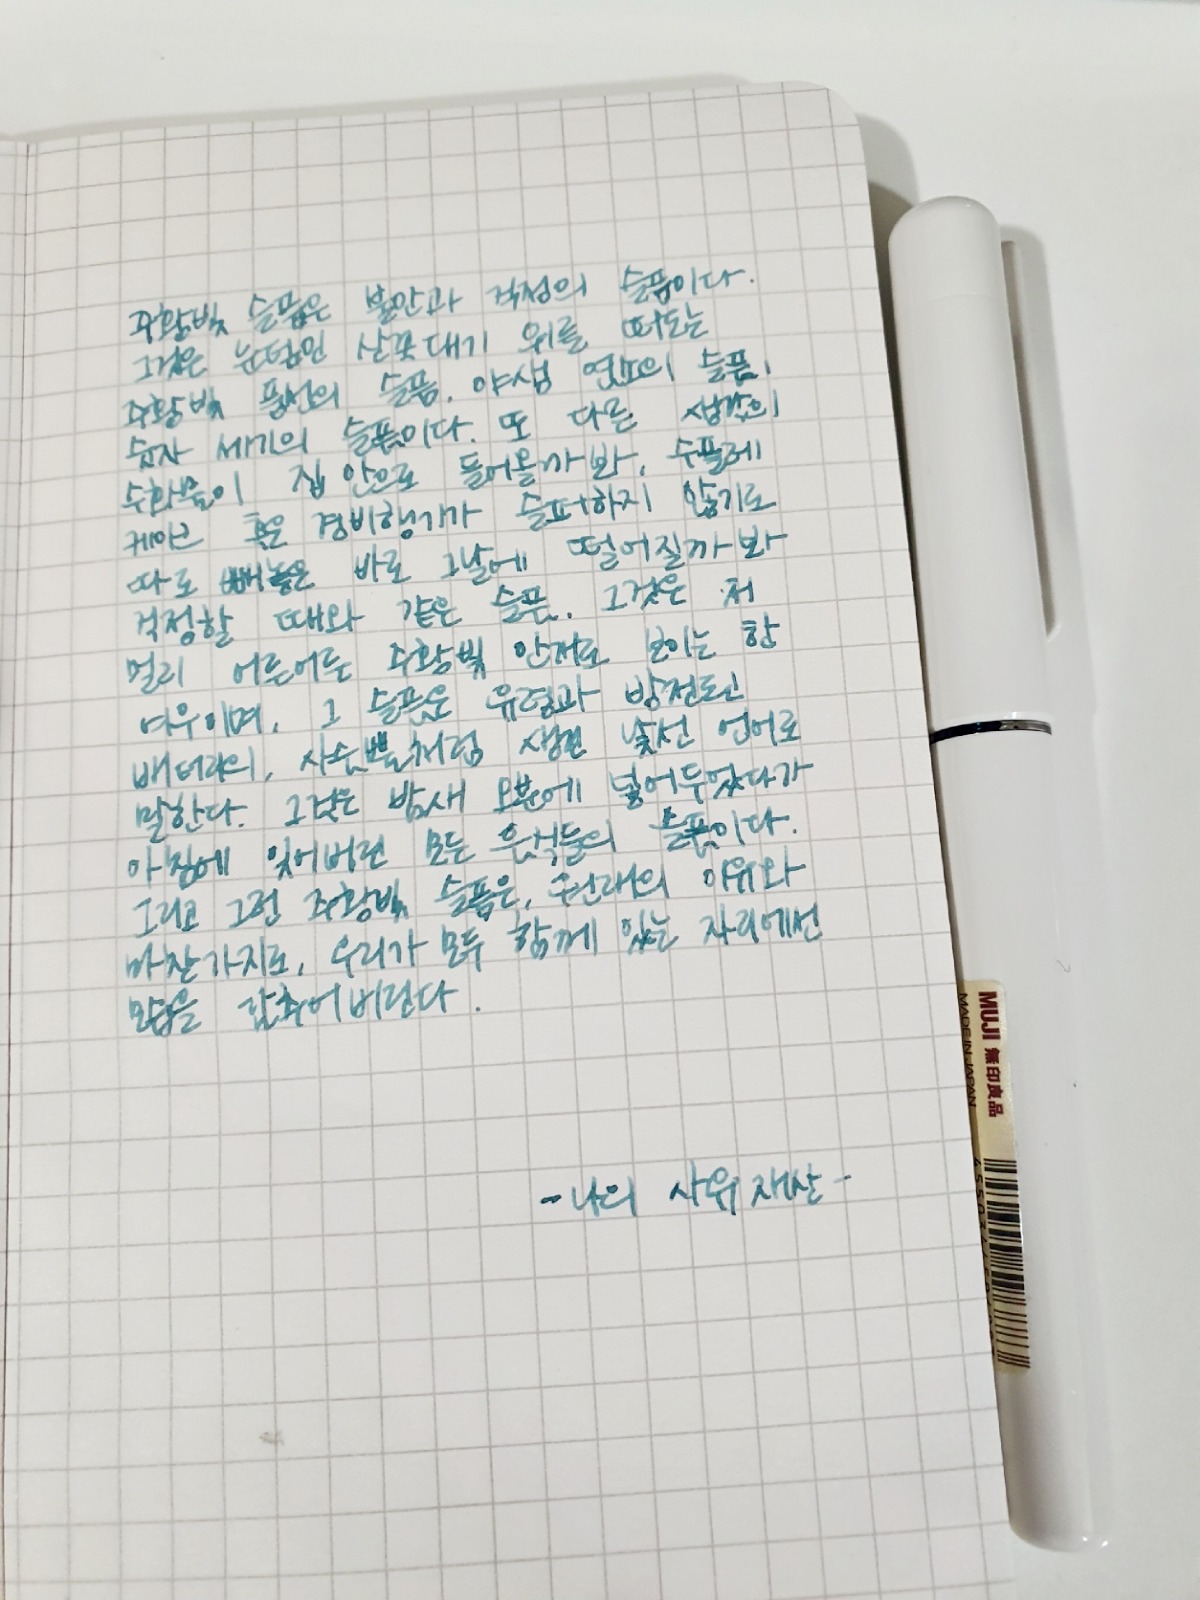 주황빛 슬픔은 불안과 걱정의 슬픔이다.
그것은 눈덮인 산꼭대기 위를 떠도는
주황빛 풍선의 슬픔. 야생 염소의 슬픔,
숫자 세기의 슬픔이다. 또 다른 생각의
수화물이 집 안으로 들어올까봐, 수플레
케이크 혹은 경비행기가 슬퍼하지 않기로
따로 빼놓은 바로 그날에 떨어질까봐
걱정할 때와 같은 슬픔. 그것은 저
멀리 어른어른 주황빛 안개로 보이는 한
여우이며, 그 슬픔은 유령과 방전된
배터리의, 사슴뿔처럼 생긴 낯선 언어로
말한다. 그것은 밤새 오븐에 넣어두었다가
아침에 잊어버린 모든 음식들의 슬픔이다.
그리고 그런 주황빛 슬픔은, 쿤란래의 여우와
마찬가지로, 우리가 모두 함께 있는 자리에선
모습을 감추어버린다.
-나의 사유 재산-
MUJI 無印良品
MADE IN JAPAN